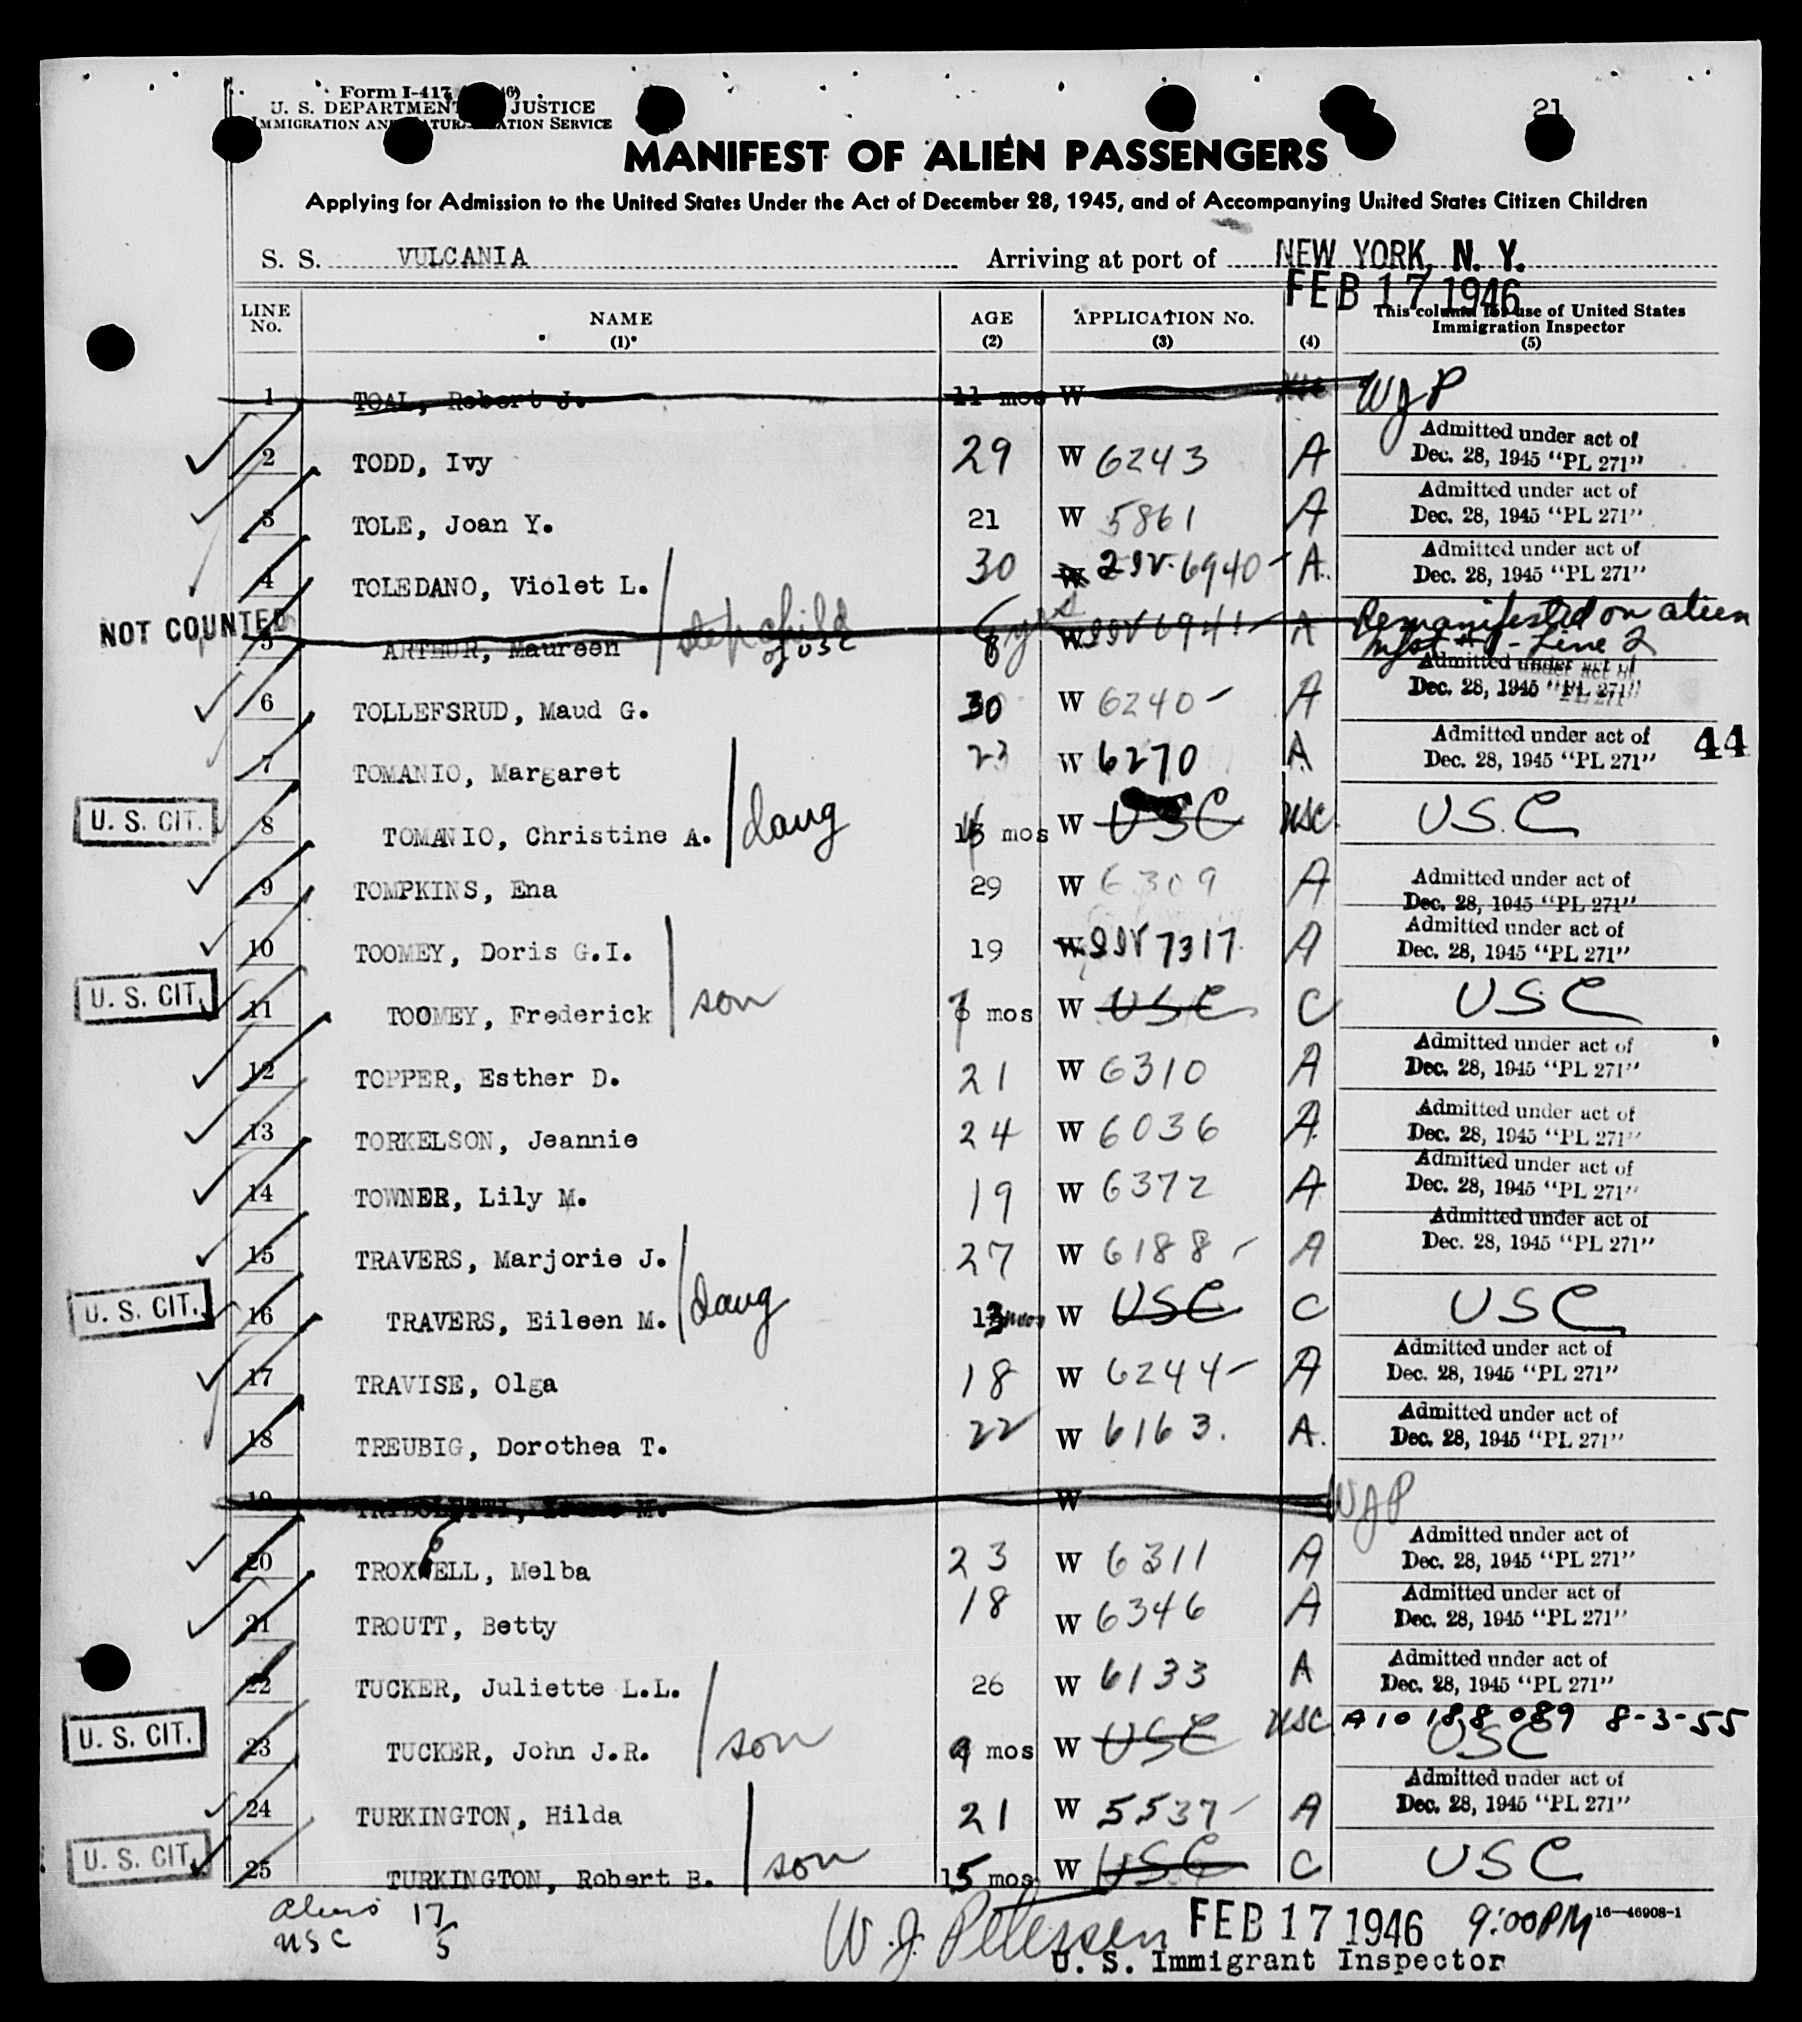 Form I-417
U. S. DEPARTMENT JUSTICE
IMMIGRATION AND NATURALIZATION SERVICE
21
MANIFEST OF ALIEN PASSENGERS
Applying for Admission to the United States Under the Act of December 28, 1945, and of Accompanying United States Citizen Children
S. S. VULCANIA Arriving at port of NEW YORK, N. Y.
FEB 17 1946
LINE No. NAME (1) AGE (2) APPLICATION No. (3) (4) This column for use of United States Immigration Inspector (5)
1 TOAL, Robert J. 11 mos W WJP
2 TODD, Ivy 29 W 6243 A Admitted under act of Dec. 28, 1945 "PL 271"
3 TOLE, Joan Y. 21 W 5861 A Admitted under act of Dec. 28, 1945 "PL 271"
4 TOLEDANO, Violet L. 30 W 6940 A Admitted under act of Dec. 28, 1945 "PL 271"
NOT COUNTED 5 ARTHUR, Maureen step child of USC 8 6 yrs W 6941 A Remanifested on alien Line 2 Admitted under act of Dec. 28, 1945 "PL 271"
6 TOLLEFSRUD, Maud G. 30 W 6240 A
7 TOMANIO, Margaret 23 W 6270 A Admitted under act of Dec. 28, 1945 "PL 271" 44
U. S. CIT. 8 TOMANIO, Christine A. daug mos W USC USC USC
9 TOMPKINS, Ena 29 W 6309 A Admitted under act of Dec. 28, 1945 "PL 271"
10 TOOMEY, Doris G.I. 19 W 7317 A Admitted under act of Dec. 28, 1945 "PL 271"
U. S. CIT. 11 TOOMEY, Frederick son mos W USC C USC
12 TOPPER, Esther D. 21 W 6310 A Admitted under act of Dec. 28, 1945 "PL 271"
13 TORKELSON, Jeannie 24 W 6036 A Admitted under act of Dec. 28, 1945 "PL 271"
14 TOWNER, Lily M. 19 W 6372 A Admitted under act of Dec. 28, 1945 "PL 271"
15 TRAVERS, Marjorie J. 27 W 6188 A Admitted under act of Dec. 28, 1945 "PL 271"
U. S. CIT. 16 TRAVERS, Eileen M. daug 13 mos W USC C USC
17 TRAVISE, Olga 18 W 6244 A Admitted under act of Dec. 28, 1945 "PL 271"
18 TREUBIG, Dorothea T. 22 W 6163. A. Admitted under act of Dec. 28, 1945 "PL 271"
19 M. W WJP
20 TROXELL, Melba 23 W 6311 A Admitted under act of Dec. 28, 1945 "PL 271"
21 TROUTT, Betty 18 W 6346 A Admitted under act of Dec. 28, 1945 "PL 271"
22 TUCKER, Juliette L.L. 26 W 6133 A Admitted under act of Dec. 28, 1945 "PL 271"
A10 188 089 8-3-55
U. S. CIT. 23 TUCKER, John J.R. son 9 mos W USC USC USC
24 TURKINGTON, Hilda 21 W 5537 A Admitted under act of Dec. 28, 1945 "PL 271"
U. S. CIT. 25 TURKINGTON, Robert B. son 15 mos W USC C USC
Aliens 17
USC 5
W. J. Petersen FEB 17 1946 9:00PM 16—46908-1
U. S. Immigrant Inspector